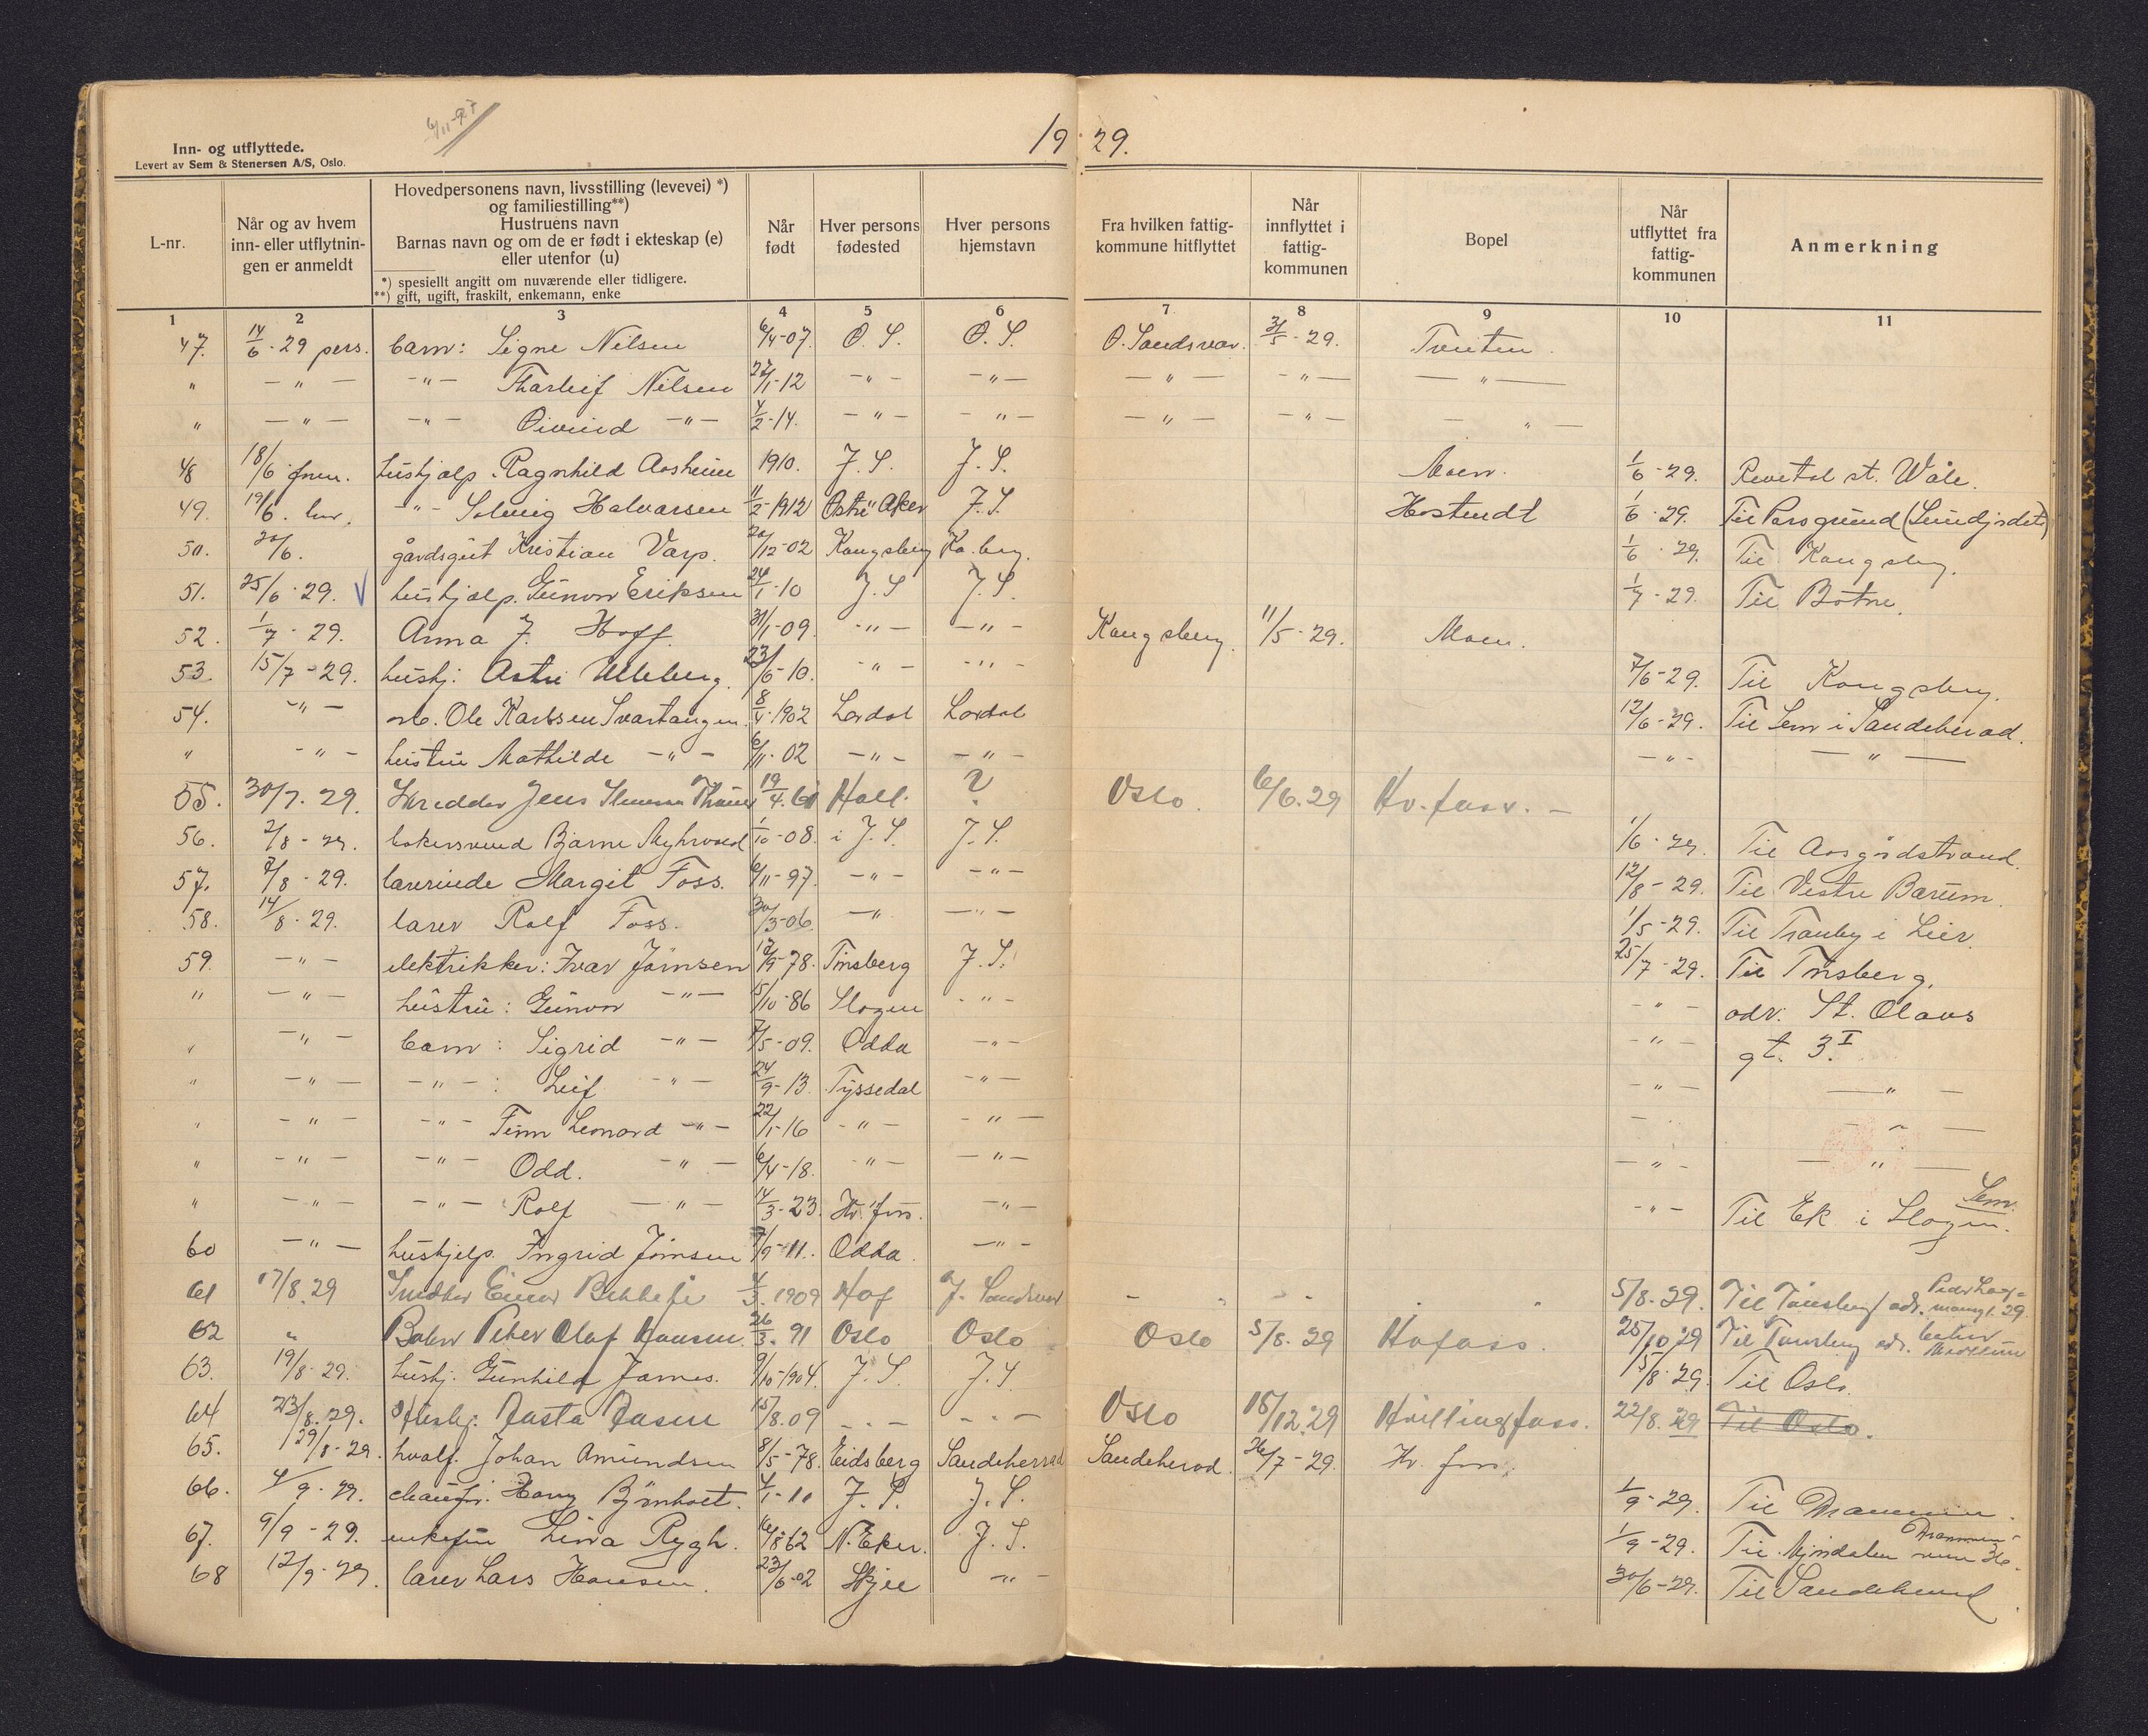 6/11-97
19 29.
Inn- og utflyttede.
Levert av Sem & Stenersen A/S, Oslo.
L-nr.
Når og av hvem
inn- eller utflytnin-
gen er anmeldt
Hovedpersonens navn, livsstilling (levevei) *)
og familiestilling**)
Hustruens navn
Barnas navn og om de er født i ekteskap (e)
eller utenfor (u)
*) spesiellt angitt om nuværende eller tidligere.
**) gift, ugift, fraskilt, enkemann, enke
Når
født
Hver persons
fødested
Hver persons
hjemstavn
Fra hvilken fattig-
kommune hitflyttet
Når
innflyttet i
fattig-
kommunen
Bopel
Når
utflyttet fra
fattig-
kommunen
Anmerkning
1 2 3 4 5 6 7 8 9 10 11
47. 14/6-29 pers. barn: Signe Nilsen 6/4-07. Ø. S. Ø. S. Ø. Sandsvær. 31/5-29. Tveiten.
" -"- -"- Tharleif Nilsen 22/1-12 -"- -"- -"- -"- -"-
" -"- -"- Øivind -"- 4/2-14. -"- -"- -"- -"- -"-
48 18/6 hushjælp. Ragnhild Aasheim 1910. J. S. J. S. Moen. 1/6-29. Revetal st. Våle.
49. 19/6. -"- Solveig Halvorsen 11/2-1912 Østre Aker J. S. 1/6-29. Til Porsgrund
50. 20/6. gårdsgut Kristian Varp. 20/12-02 Kongsberg Ko.berg. 1/6-29. Til Kongsberg.
51. 25/6-29. hushjælp. Gunvor Eriksen 24/1-10 J. S J. S. 1/7-29. Til Botne.
52. 1/7-29. Anna J. Hoff. 31/1-09. -"- -"- Kongsberg. 11/5-29. Moen.
53. 15/7-29. hushj: Astri Ulleberg. 23/6-10. -"- -"- 7/6-29. Til Kongsberg.
54. -"- arb. Ole Karlsen Svartangen. 8/4-1902 Lardal Lardal 12/6-29. Til Sem i Sandeherad.
" -"- hustru Mathilde -"- 6/11-02 -"- -"- -"- -"-
55. 30/7. 29. Skredder Jens 19/4.61 Holl. ? Oslo. 6/6.29 Hv.foss. -
56. 2/8-29. bakersvend Bjarne Myhrvold 1/10-08. i J. S. J. S. 1/6-29. Til Aasgårdstrand.
57. 7/8-29. lærerinde Margit Foss. 6/11-97. -"- -"- 12/8-29. Til Vestre Bærum.
58. 14/8-29. lærer Rolf Foss. 30/3-06. -"- -"- 1/5-29. Til Tranby i Lier.
59. -"- elektrikker: Ivar Jørnsen 12/9-78. Tønsberg J. S. 25/7-29. Til Tønsberg,
" -"- hustru: Gunvor -"- 15/10-86 Slagen -"- -"- adr. St. Olavs
" -"- barn: Sigrid -"- 7/5-09. Odda -"- -"- gt. 3.I
" -"- -"-: Leif -"- 24/9-13. Tyssedal -"- -"- -"-
" -"- -"- Finn Leonard -"- 22/1-16 -"- " - -"-
" -"- -"- Odd. -"- 6/4-18. -"- -"- -"- -"-
" -"- -"- Rolf -"- 14/3-23. Hv. foss. -"- -"- Til Ek i Slagen. Sem.
60 -"- hushjelp. Ingrid Jørnsen 7/9-11. Odda. -"-
61 17/8.29 Einar 4/3.1909 Hof J. Sandsvær 5/8.29. Til Tønsberg adr.
62 " Baker Peter Olaf Hansen 26/3.91 Oslo Oslo Oslo 5/8.29 Hvfoss. 25/10 29 Til Tønsberg adr.
63. 19/8-29. hushj. Gunhild James. 9/10-1904. J. S. J. S. 15/8-29. Til Oslo.
64 23/8.29. hushj. Jasta Jasen 15/8.09 -"- -"- Oslo 18/12.29 Hvittingfoss. 22/8.29 Til Oslo.
65. 29/8-29. hvalf. Johan Amundsen 8/5-78. Eidsberg Sandeherred Sandeherad. 26/7-29. Hv. foss.
66. 4/9-29. chauffør. Harry Bjørnholt. 4/1-10 J. S. J. S. 1/9-29. Til Drammen.
67. 9/9-29. enkefru Lina Rygh. N. Eker. J. S. 1/9-29. Til Mjøndalen
68 12/9-29. lærer Lars Hansen. 23/6-02 Skjee -"- 30/6-29. Til Sandeherad